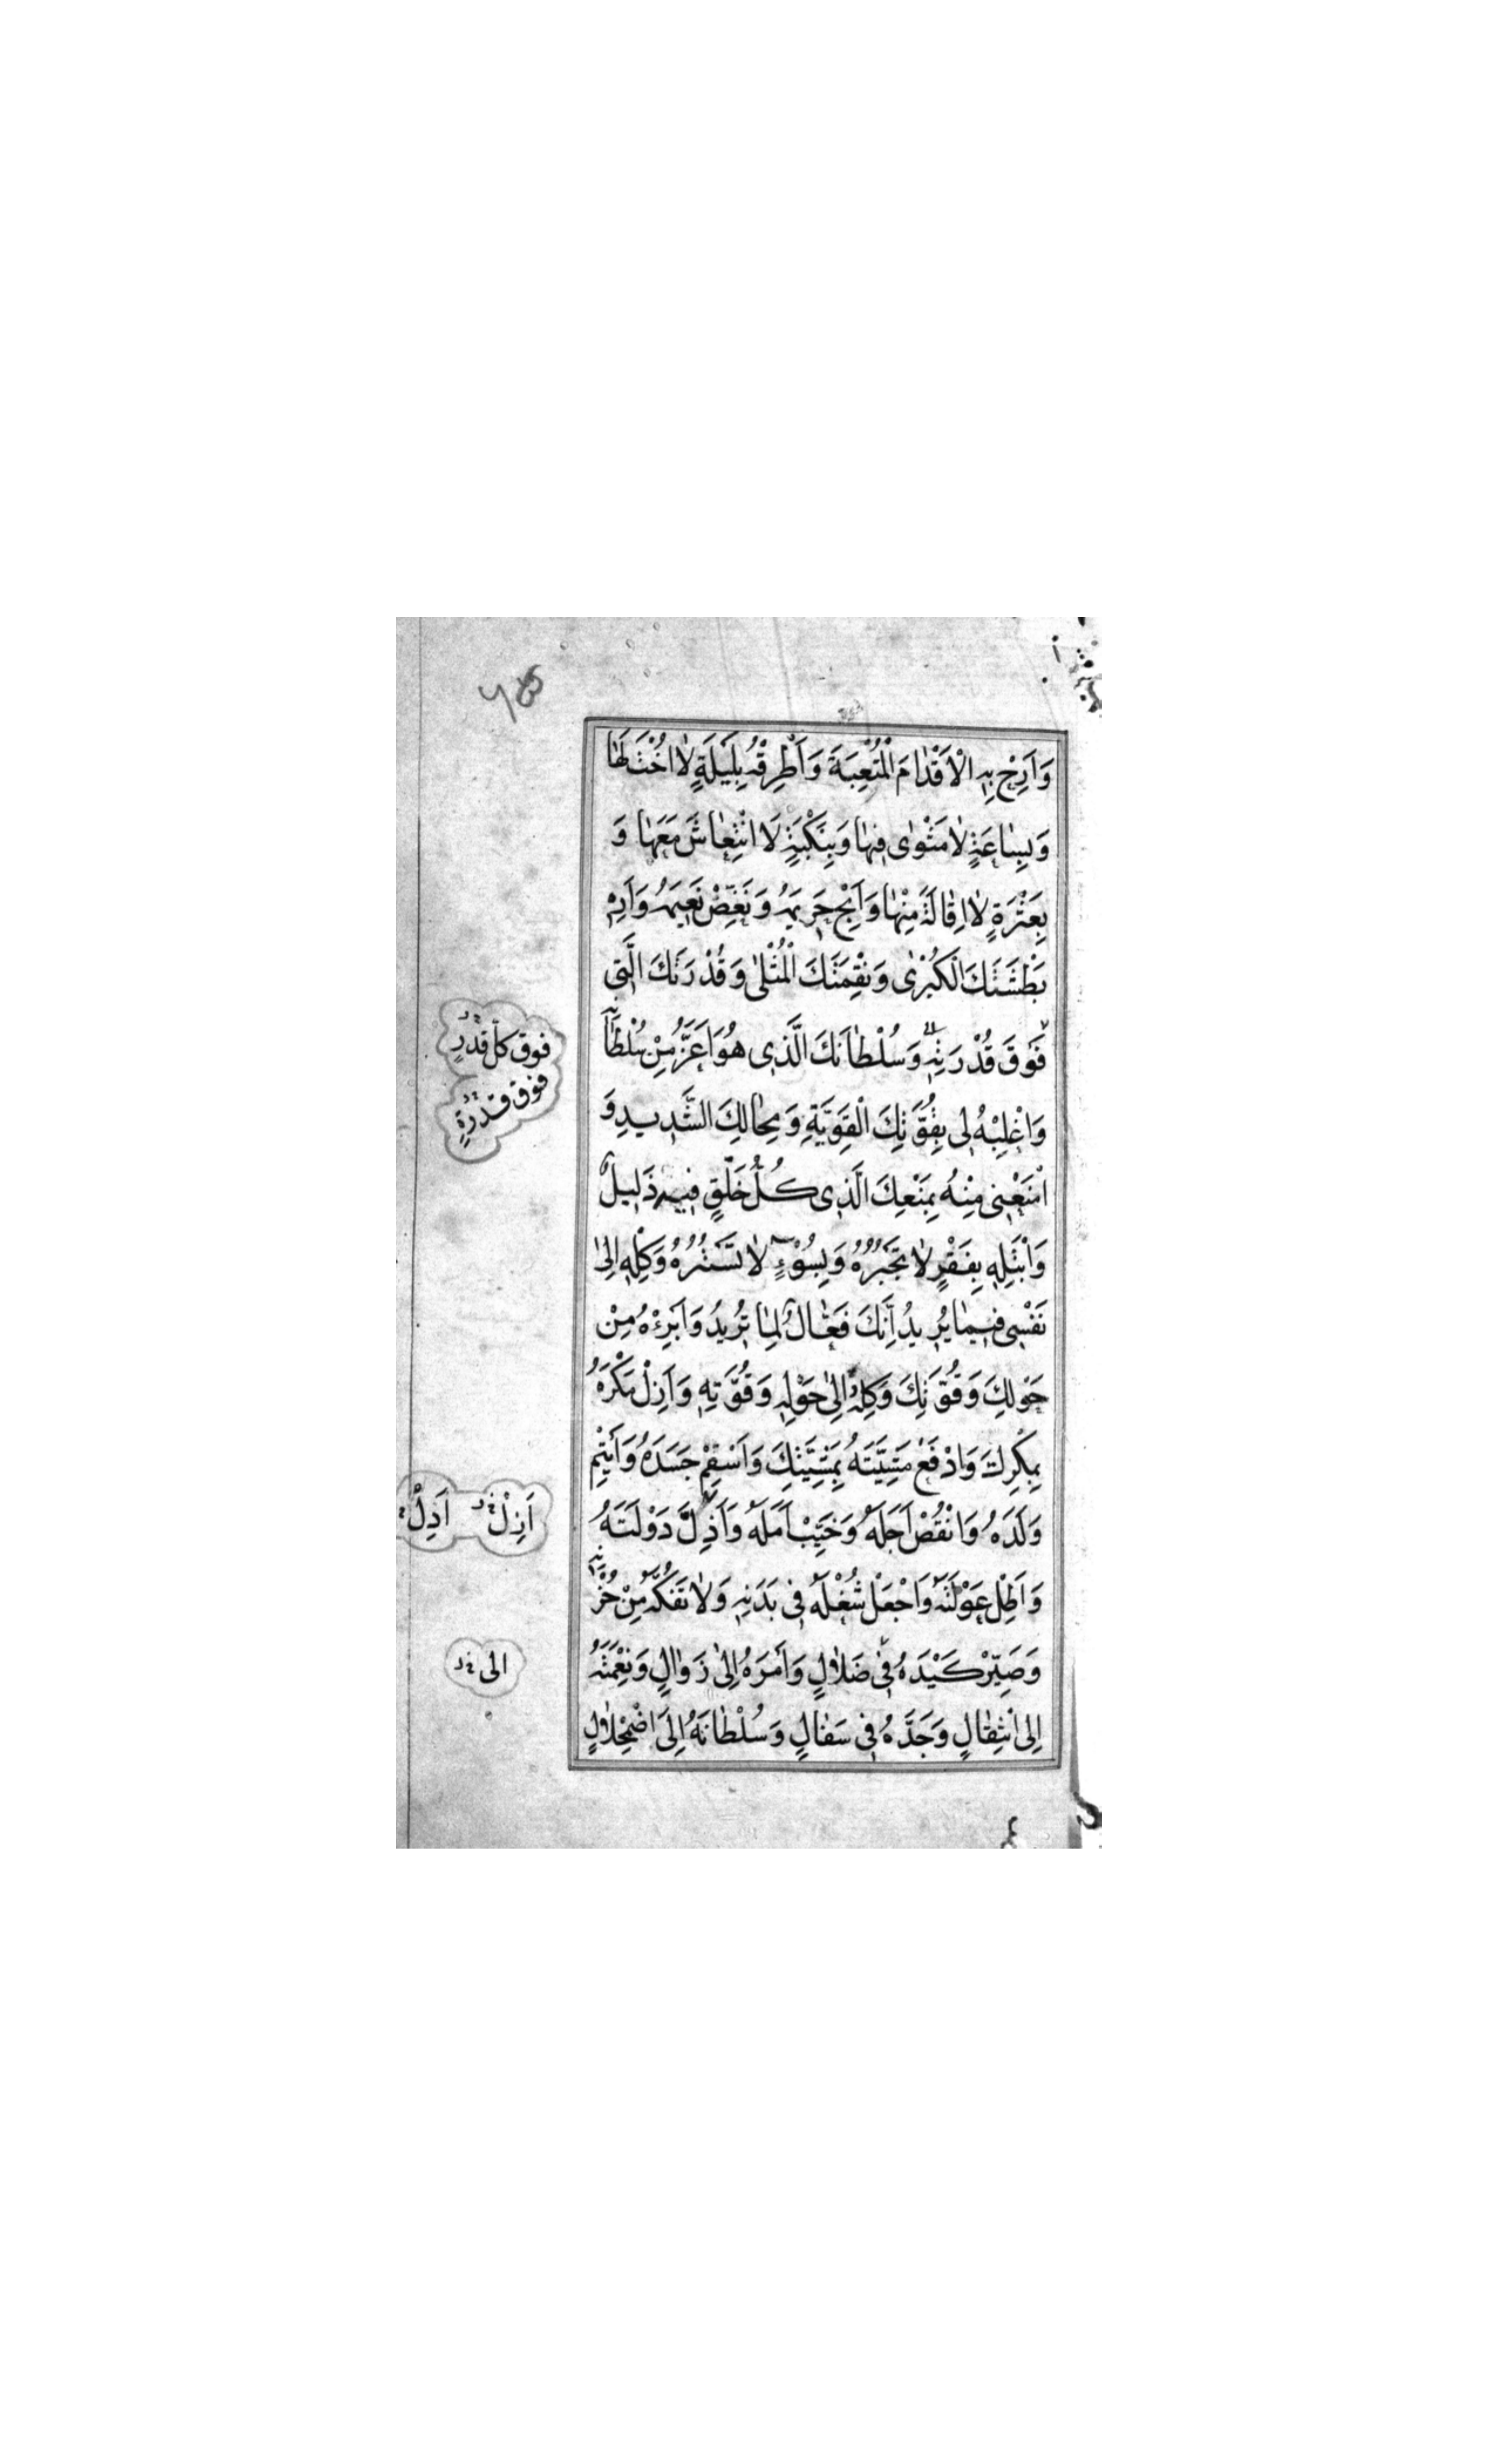 وَاَرِحْ بِهِ الْاَقْدٰامَ الْمُتْعِبَةَ وَاَطْرِقْهُ بِلَيْلَةٍ لٰا اُخْتَ لَهٰا
وَبِسٰاعَةٍ لٰا مَثْوٰى فِيهٰا وَبِنَكْبَةٍ لَا انْتِعٰاشَ مَعَهٰا وَ
بِعَثْرَةٍ لٰا اِقٰالَةَ مِنْهٰا وَاَبِحْ حَرِيمَهُ وَنَغِّصْ نَعِيمَهُ وَاَرِهِ
بَطْشَتَكَ الْكُبْرٰى وَنَقِمَتَكَ الْمُثْلٰى وَقُدْرَتَكَ الَّتِى
فَوْقَ قُدْرَتِهِ وَسُلْطٰانَكَ الَّذِى هُوَ اَعَزُّ مِنْ سُلْطٰانِهِ
وَاغْلِبْهُ لِى بِقُوَّتِكَ الْقَوِيَّةِ وَمِحٰالِكَ الشَّدِيدِ وَ
امْنَعْنِى مِنْهُ بِمَنْعِكَ الَّذِى كُلُّ خَلْقٍ فِيهِ ذَلِيلٌ
وَابْتَلِهِ بِفَقْرٍ لٰا تَجْبُرُهُ وَبِسُوْءٍ لٰا تَسْتُرُهُ وَكِلْهِ اِلٰى
نَفْسِى فِيمٰا يُرِيدُ اِنَّكَ فَعّٰالٌ لِمٰا تُرِيدُ وَاَبْرِءْهُ مِنْ
حَوْلِكَ وَقُوَّتِكَ وَكِلْهُ اِلٰى حَوْلِهِ وَقُوَّتِهِ وَاَزِلْ مَكْرَهُ
بِمَكْرِكَ وَادْفَعْ مَشِيَّتَهُ بِمَشِيَّتِكَ وَاَسْقِمْ جَسَدَهُ وَاَيْتِمْ
وَلَدَهُ وَانْقُصْ اَجَلَهُ وَخَيِّبْ اَمَلَهُ وَاَذِلَّ دَوْلَتَهُ
وَاَطِلْ عَوْلَتَهُ وَاجْعَلْ شُغْلَهُ فِى بَدَنِهِ وَلٰا تَفُكَّهُ مِنْ حُزْنِهِ
وَصَيِّرْ كَيْدَهُ فِى ضَلٰالٍ وَاَمْرَهُ اِلٰى زَوٰالٍ وَنِعْمَتَهُ
اِلَى انْتِقٰالٍ وَجَدَّهُ فِى سَفٰالٍ وَسُلْطٰانَهُ اِلَى اضْمِحْلٰالٍ
فوق كل قدرٍ
فوق قدرةٍ
اَزِلْ اَدِلْ
الى